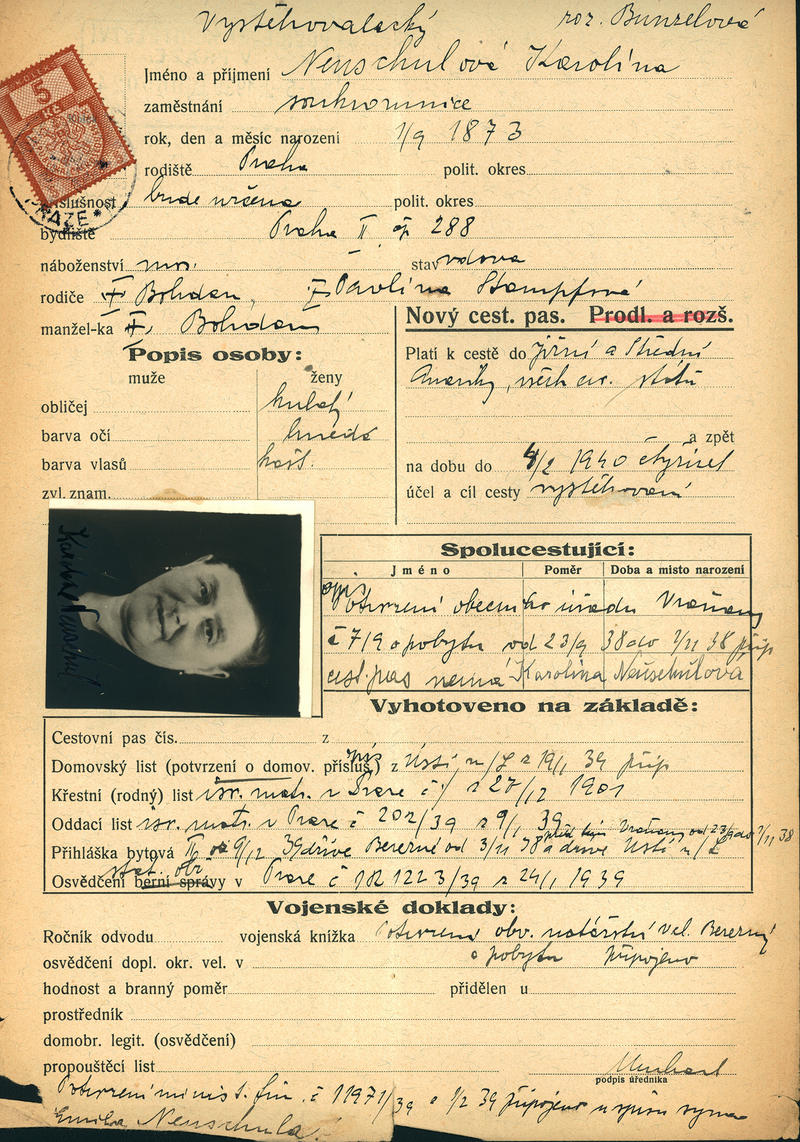 Vystěhovalecký roz. Bunzelová
5
Kč
Jméno a příjmení Neuschulová Karolina
zaměstnání soukromnice
rok, den a měsíc narození 1/9 1873
rodiště Praha polit. okres
příslušnost bude určena polit. okres
RAZE
bydliště Praha II čp 288
náboženství mos. stav vdova
rodiče Ť Bohdan, Ť Pavlína Stampfová
manžel-ka Ť. Bohdan
Nový cest. pas. Prodl. a rozš.
Popis osoby:
muže ženy
obličej kulatý
barva očí hnědé
barva vlasů kašt.
zvl. znam.
Platí k cestě do Jižní a Střední
Ameriky, všech evr. států
a zpět
na dobu do 4/2 1940 čtyřicet
účel a cíl cesty vystěhování
Karolina Neuschul
Spolucestující:
Jméno Poměr Doba a místo narození
opis
Potvrzení obecního úřadu Vraňany
č 719 o pobytu od 23/9 38 do 2/11 38 přip
cest. pas nemá Karolina Neuschulova
Vyhotoveno na základě:
Cestovní pas čís. z
Domovský list (potvrzení o domov. přísluš.) z Ústí n/L z 19/1 39 přip
Křestní (rodný) list isr. matr. v Praze č / z 27/12 1901
Oddací list isr. matr. v Praze č 202/39 z 9/1 39
Vraňany od 23/9 do 2/11 38
Přihláška bytová 9/12 39 dříve Berezné od 3/11 38 a dříve Ústí n/L
stát. obč.
Osvědčení berní správy v Praze č 1R 1223/39 z 24/1 1939
Vojenské doklady:
Ročník odvodu vojenská knížka Potvrzení obv. notářství Vel. Berezný
osvědčení dopl. okr. vel. v o pobytu připojeno
hodnost a branný poměr přidělen u
prostředník
domobr. legit. (osvědčení)
propouštěcí list
podpis úředníka
Potvrzení minist. fin. č 11971/39 z 1/2 39 připojeno u spisu syna
Emila Neuschula.